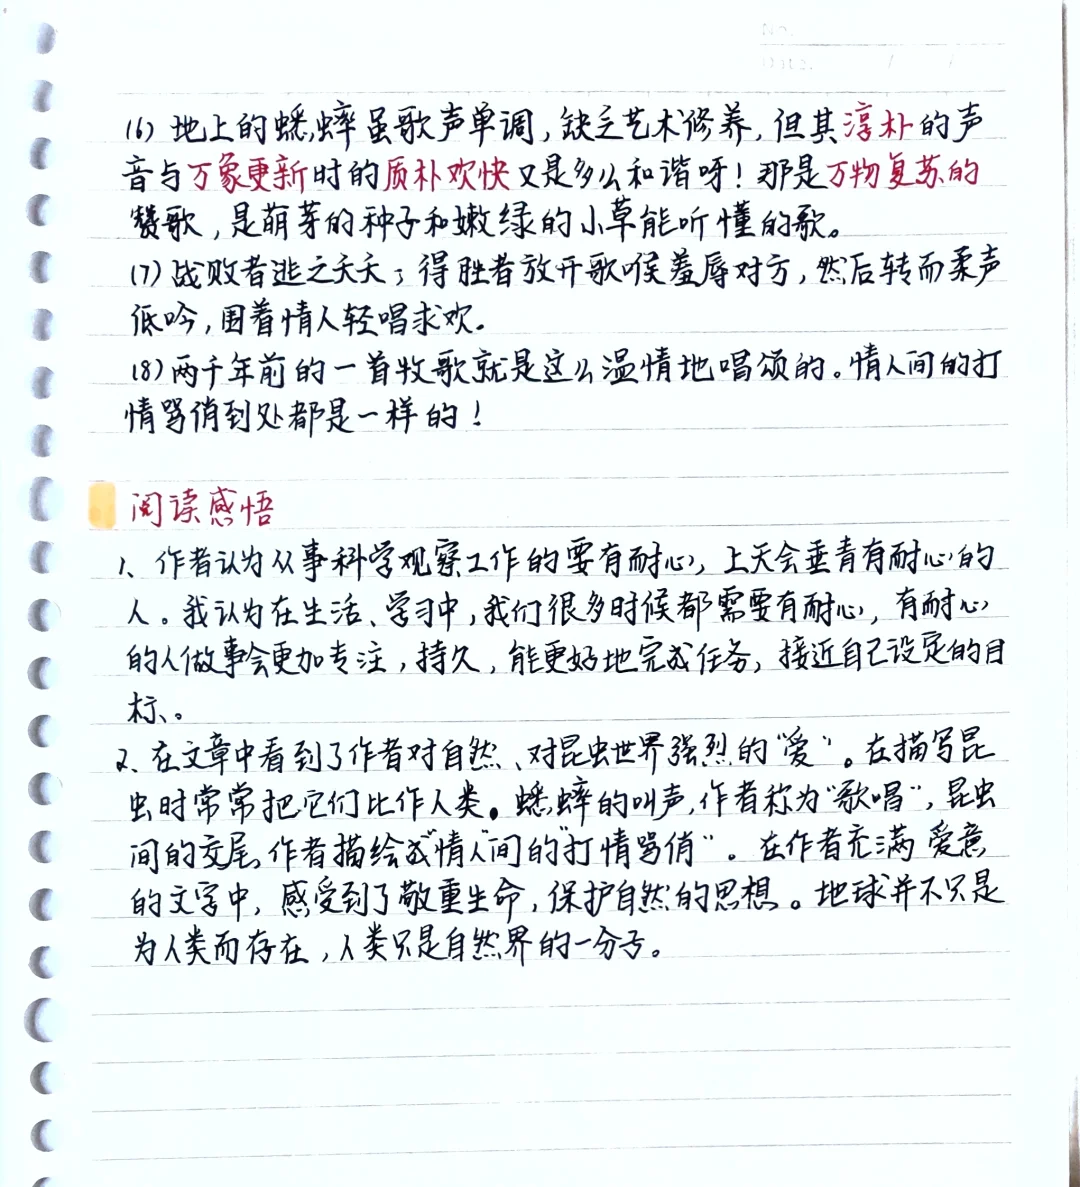 No.
Date. / /
(6) 地上的蟋蟀虽歌声单调，缺乏艺术修养，但其淳朴的声
音与万象更新时的质朴欢快又是多么和谐呀！那是万物复苏的
赞歌，是萌芽的种子和嫩绿的小草能听懂的歌。
(7) 战败者逃之夭夭；得胜者放开歌喉羞辱对方，然后转而柔声
低吟，围着情人轻唱求欢。
(8) 两千年前的一首牧歌就是这么温情地唱颂的。情人间的打
情骂俏到处都是一样的！
阅读感悟
1、作者认为从事科学观察工作的要有耐心，上天会垂青有耐心的
人。我认为在生活、学习中，我们很多时候都需要有耐心，有耐心
的人做事会更加专注，持久，能更好地完成任务，接近自己设定的目
标。
2、在文章中看到了作者对自然、对昆虫世界强烈的“爱”。在描写昆
虫时常常把它们比作人类。蟋蟀的叫声，作者称为“歌唱”，昆虫
间的交尾，作者描绘成“情人”间的“打情骂俏”。在作者充满爱意
的文字中，感受到了敬重生命，保护自然的思想。地球并不只是
为人类而存在，人类只是自然界的一分子。